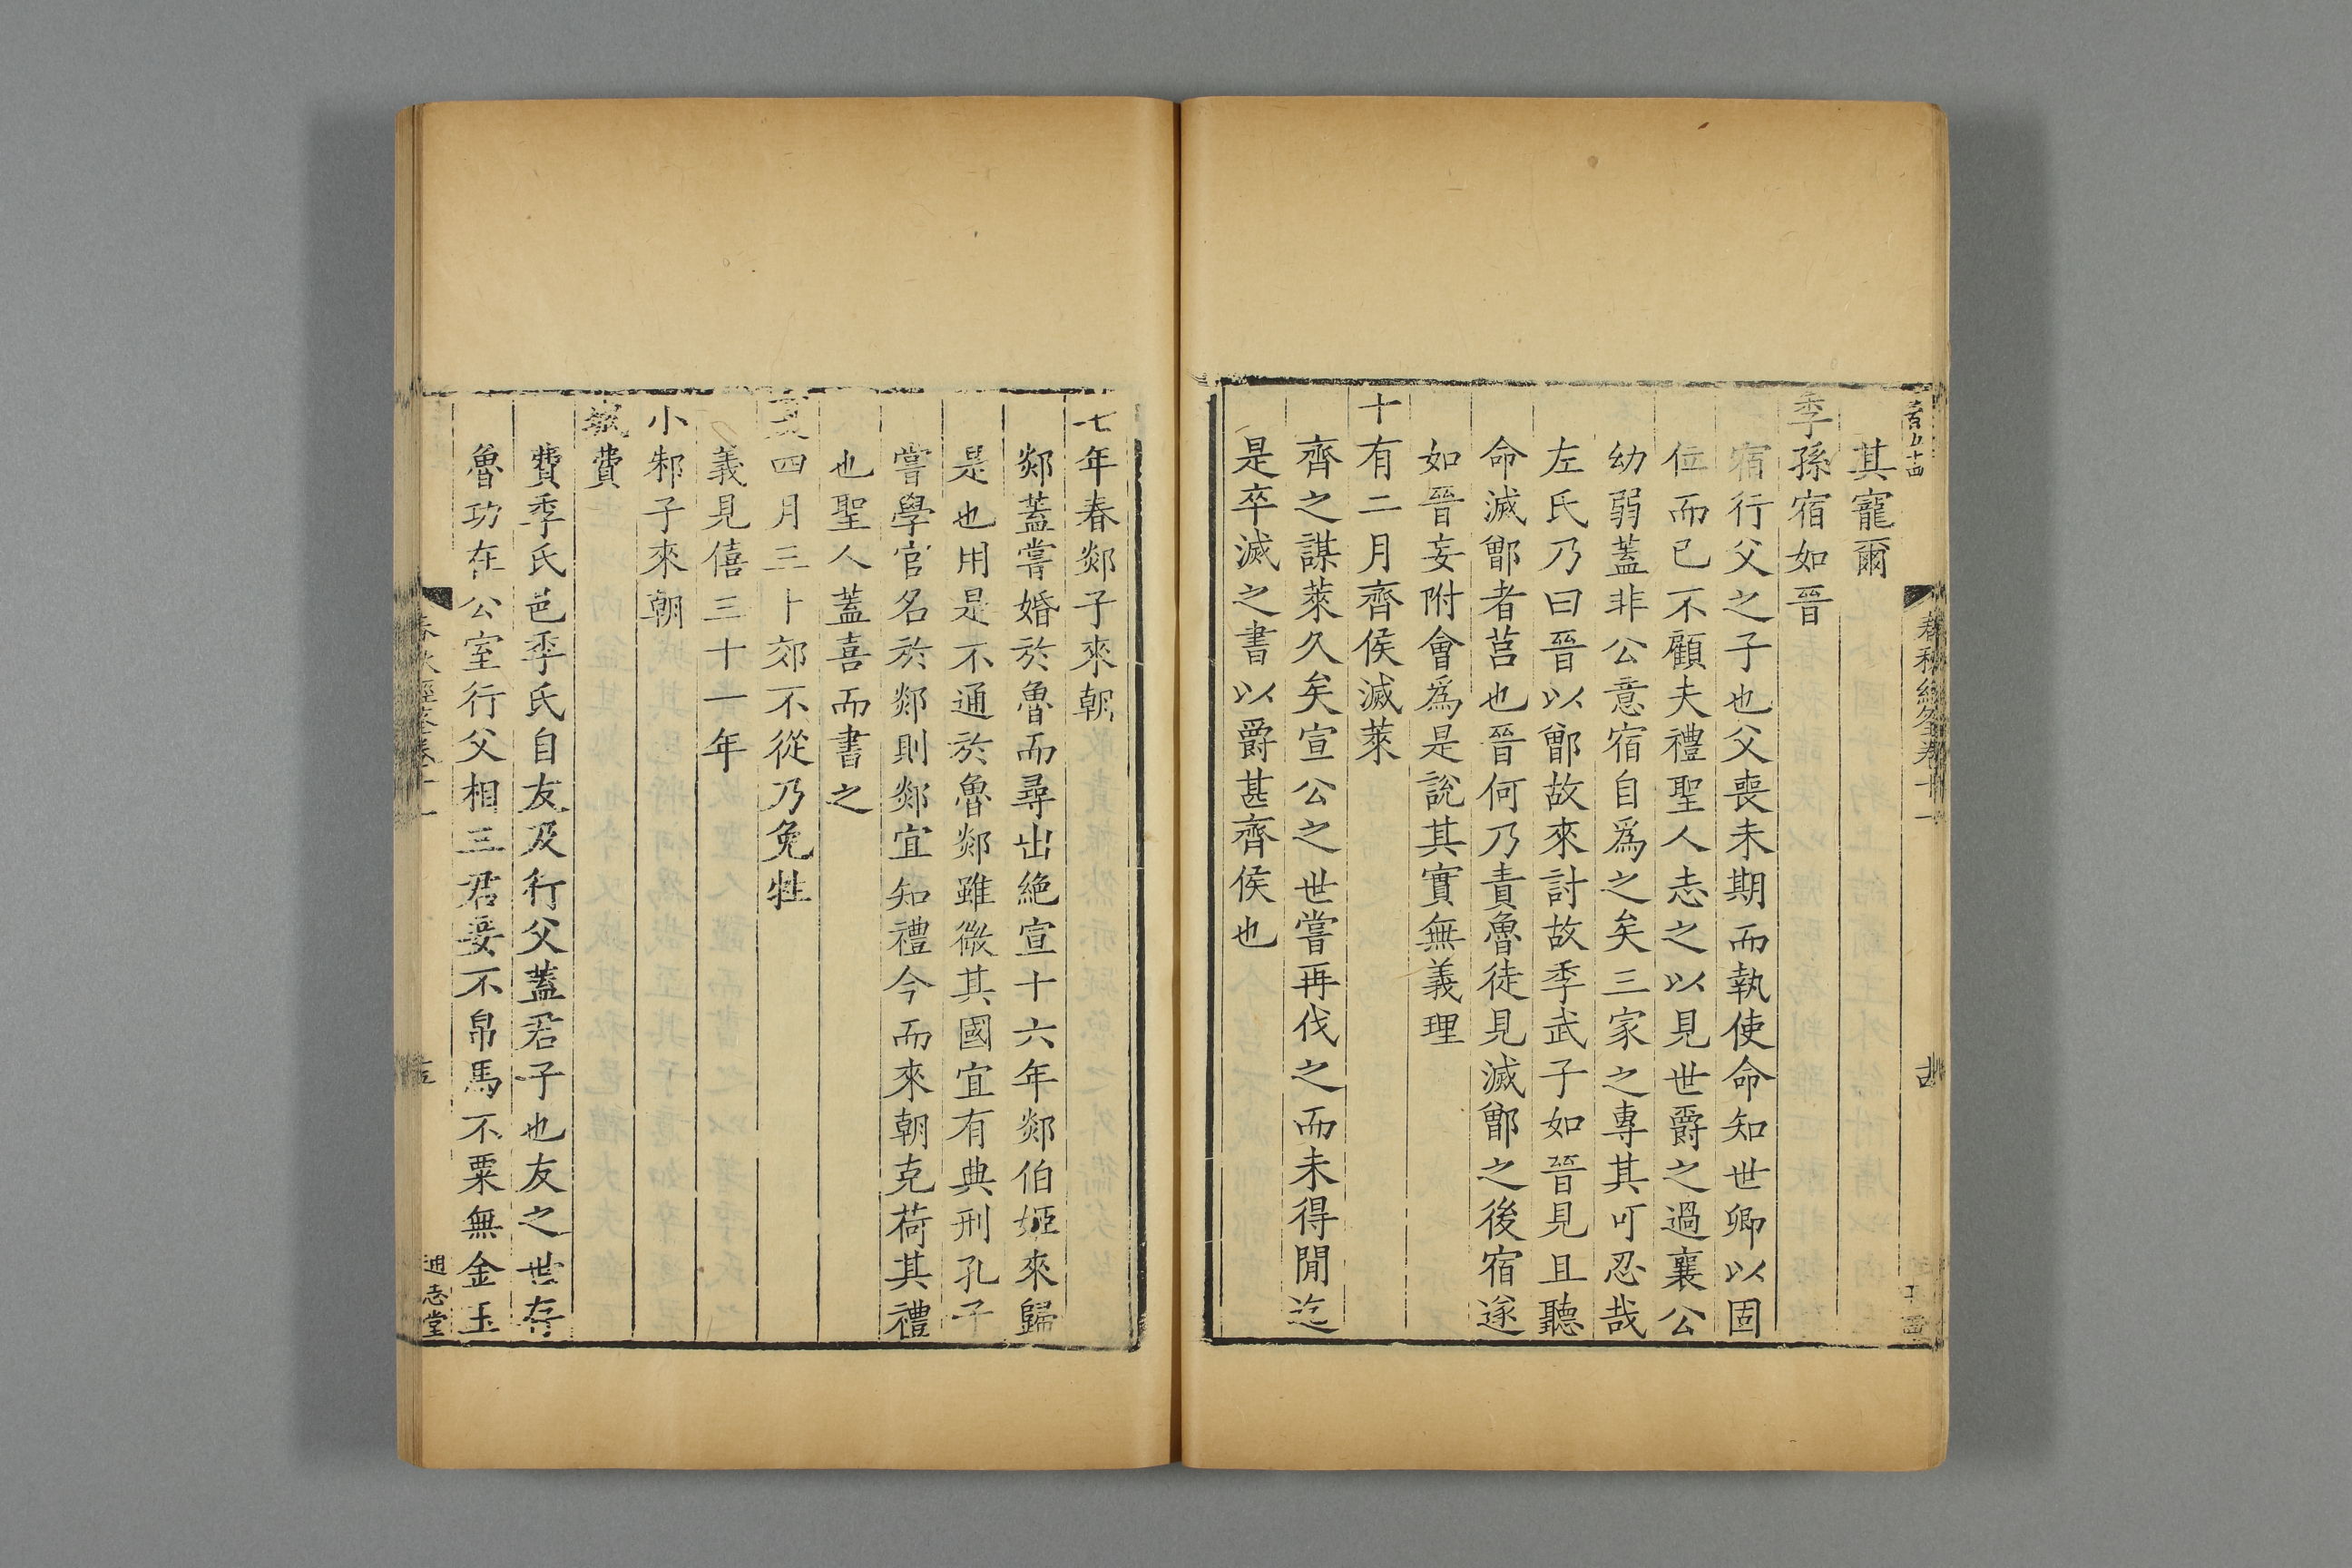 其寵爾
季孫宿如晉
宿行父之子也父喪未期而執使命知世卿以固
位而已不顧夫禮聖人志之以見世爵之過襄公
幼弱蓋非公意宿自爲之矣三家之專其可忍哉
左氏乃曰晉以鄫故來討故季武子如晉見且聽
命滅鄫者莒也晉何乃責魯徒見滅鄫之後宿遂
如晉妄附會爲是說其實無義理
十有二月齊侯滅萊
齊之謀萊久矣宣公之世嘗再伐之而未得閒迄
是卒滅之書以爵甚齊侯也
七年春郯子來朝
郯蓋嘗婚於魯而尋出絶宣十六年郯伯姬來歸
是也用是不通於魯郯雖微其國宜有典刑孔子
嘗學官名於郯則郯宜知禮今而來朝克荷其禮
也聖人蓋喜而書之
夏四月三卜郊不從乃免牲
義見僖三十一年
小邾子來朝
城費
費季氏邑季氏自友及行父蓋君子也友之世存
魯功在公室行父相三君妾不帛馬不粟無金玉
春秋經筌卷十一
通志堂